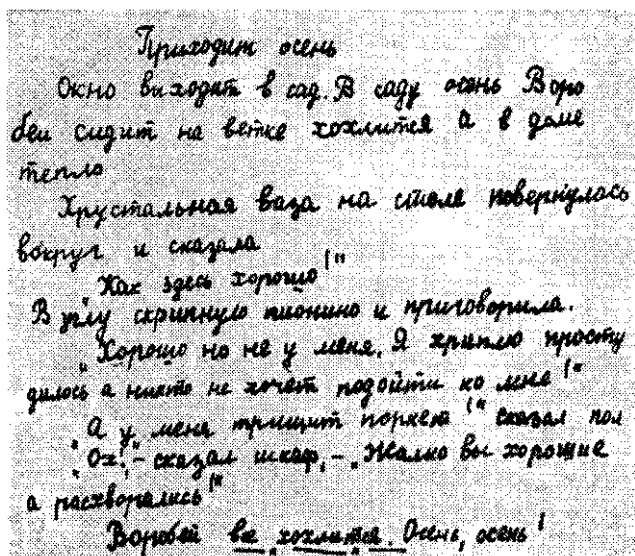 Приходит осень
Окно выходит в сад. В саду осень Воро
беи сидит на ветке хохлится а в доме
тепло
Хрустальная ваза на столе повернулась
вокруг и сказала
"Как здесь хорошо!"
В углу скрипнуло пионино и приговорила.
"Хорошо но не у меня. Я хриплю просту
дилось а никто не хочет подойти ко мне!"
"А у меня трищит поркет!" сказал пол
"Ох!" - сказал шкаф, - "Жалко вы хорошие
а расхворались!"
Воробей все хохлится. Осень, осень!